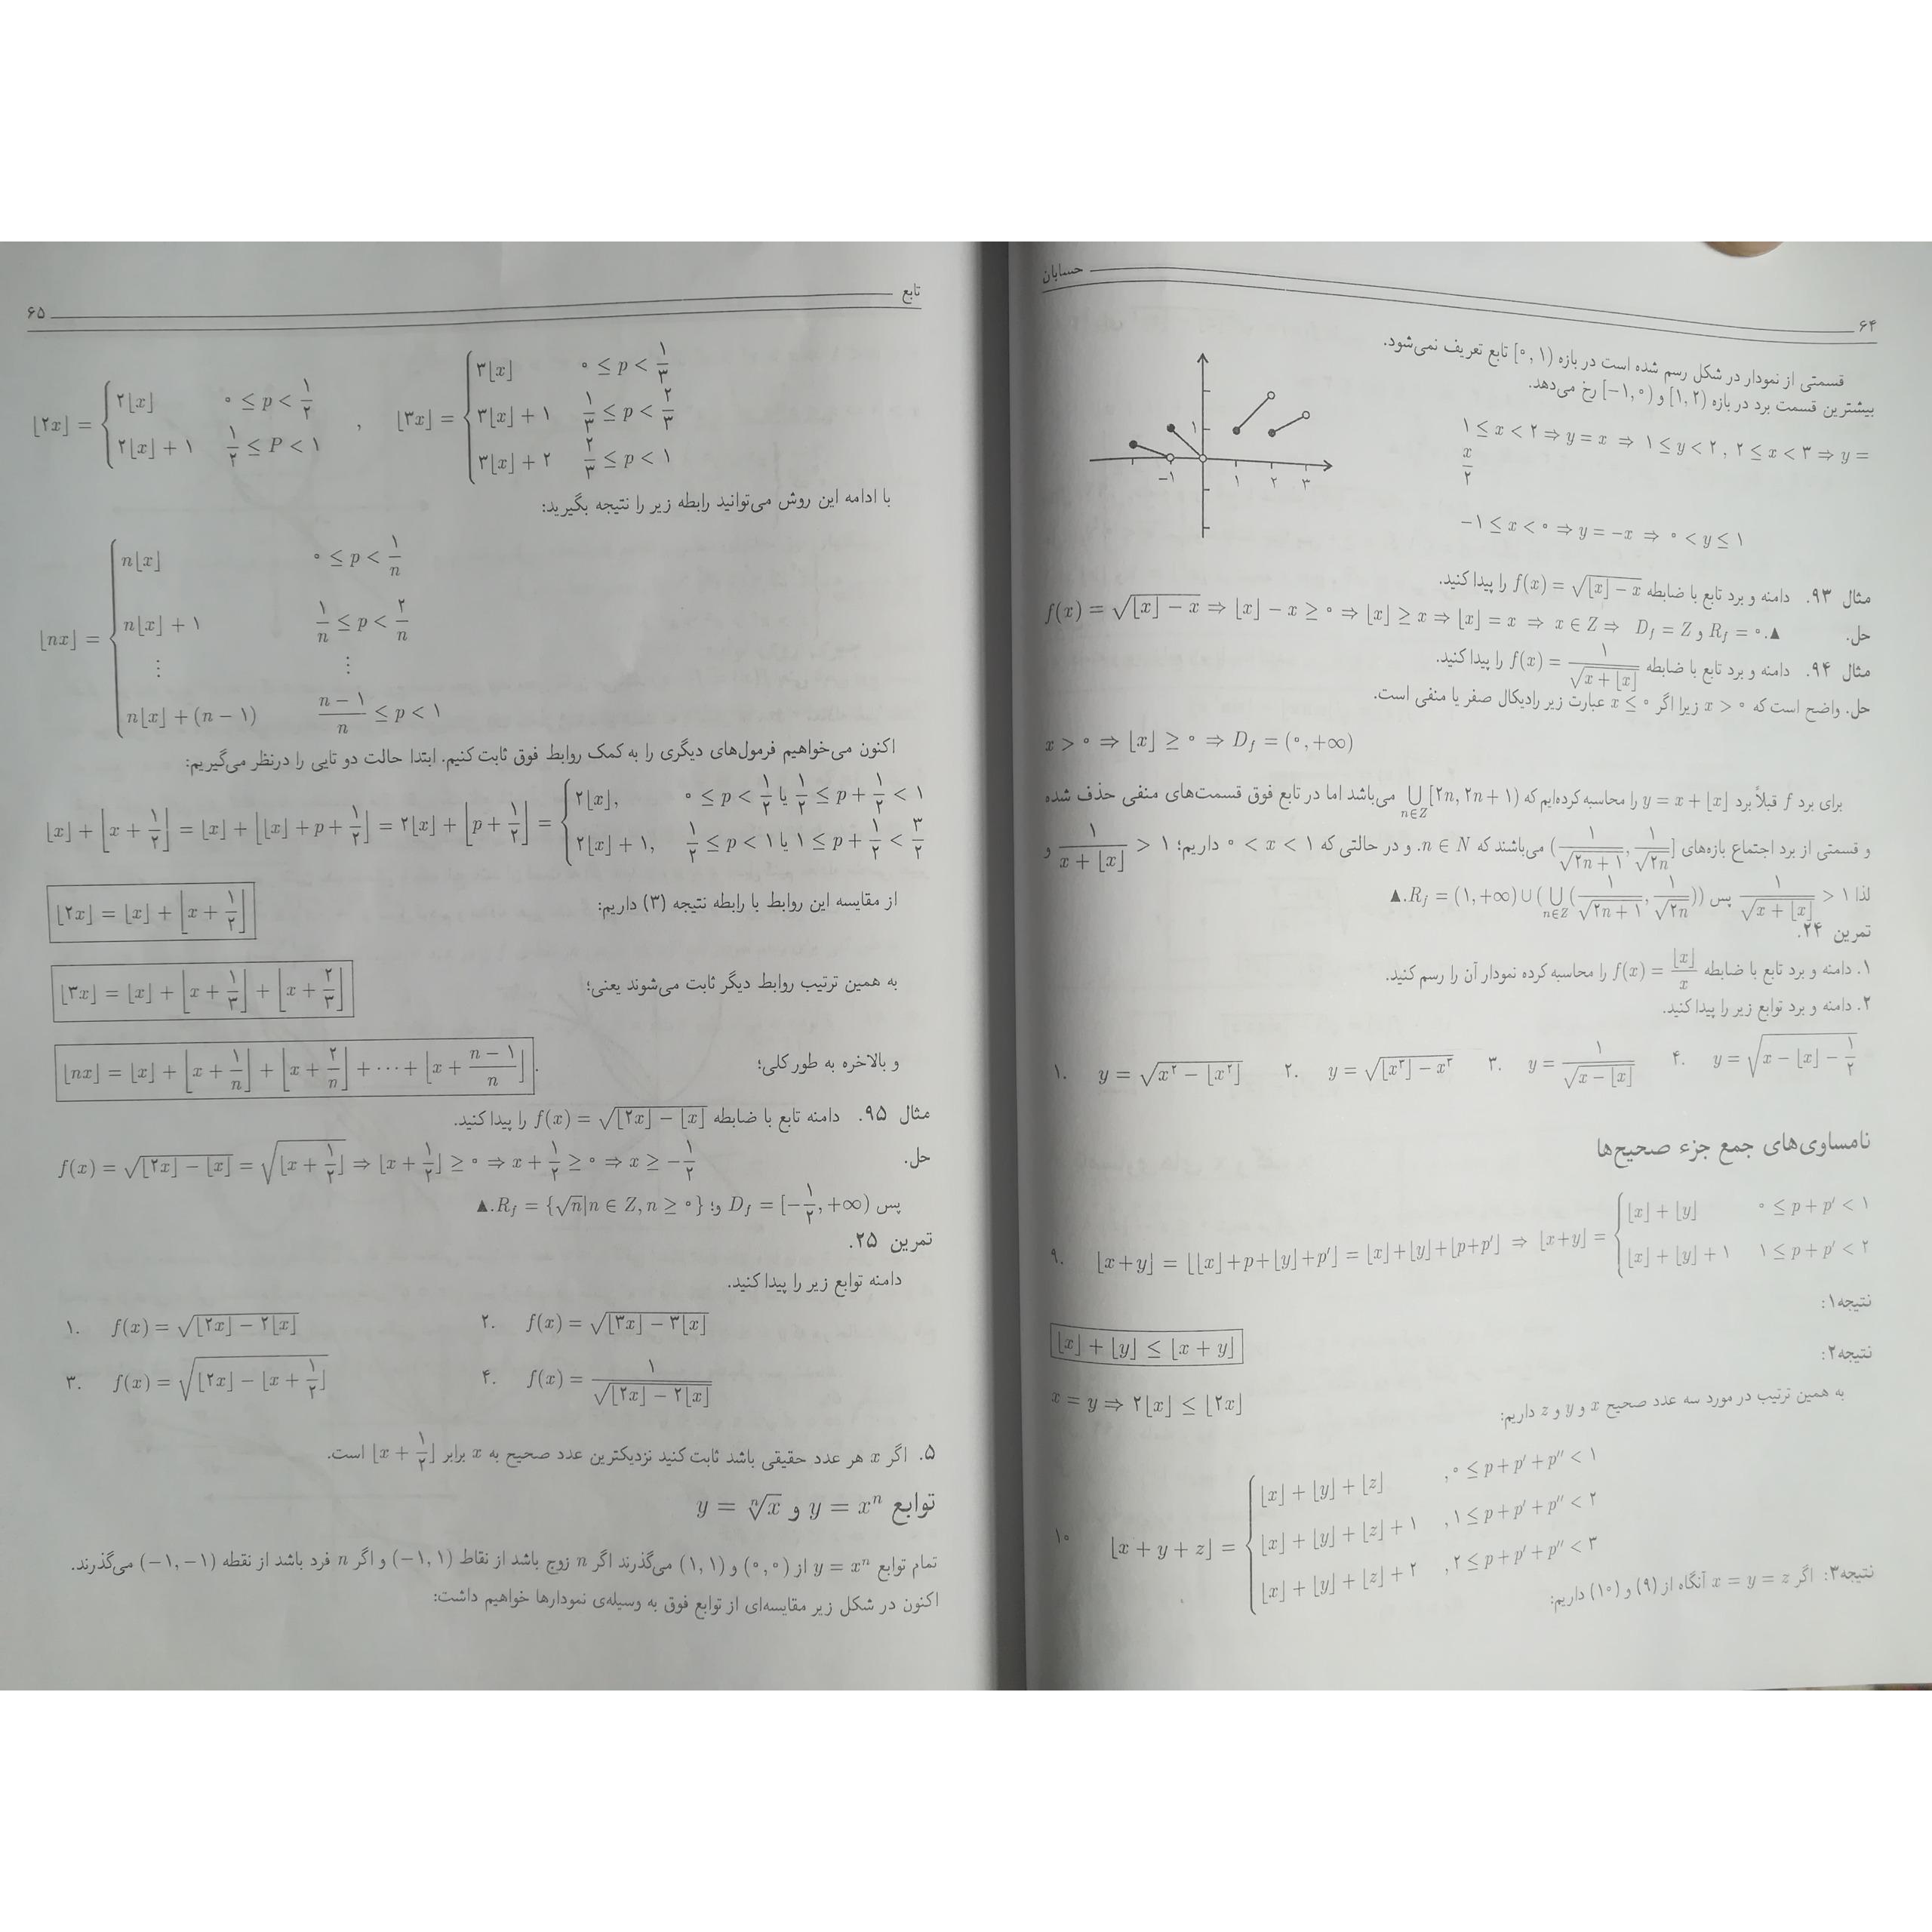 حسابان
۶۴
قسمتی از نمودار در شکل رسم شده است در بازه [۰, ۱) تابع تعریف نمی‌شود.
بیشترین قسمت برد در بازه [۱, ۲) و [−۱, ۰) رخ می‌دهد.
۱ ≤ x < ۲ ⇒ y = x ⇒ ۱ ≤ y < ۲ , ۲ ≤ x < ۳ ⇒ y =
x/۲
−۱ ≤ x < ۰ ⇒ y = −x ⇒ ۰ < y ≤ ۱
۱
−۱ ۱ ۲ ۳
مثال ۹۳. دامنه و برد تابع با ضابطه f(x) = √(⌊x⌋ − x) را پیدا کنید.
حل. f(x) = √(⌊x⌋ − x) ⇒ ⌊x⌋ − x ≥ ۰ ⇒ ⌊x⌋ ≥ x ⇒ ⌊x⌋ = x ⇒ x ∈ Z ⇒ D_f = Z و R_f = ۰.▲
مثال ۹۴. دامنه و برد تابع با ضابطه f(x) = ۱/√(x + ⌊x⌋) را پیدا کنید.
حل. واضح است که x > ۰ زیرا اگر x ≤ ۰ عبارت زیر رادیکال صفر یا منفی است.
x > ۰ ⇒ ⌊x⌋ ≥ ۰ ⇒ D_f = (۰, +∞)
برای برد f قبلاً برد y = x + ⌊x⌋ را محاسبه کرده‌ایم که ⋃_{n∈Z} [۲n, ۲n + ۱) می‌باشد اما در تابع فوق قسمت‌های منفی حذف شده
و قسمتی از برد اجتماع بازه‌های (۱/√(۲n + ۱), ۱/√(۲n)] می‌باشند که n ∈ N. و در حالتی که ۰ < x < ۱ داریم؛ ۱/(x + ⌊x⌋) > ۱ و
لذا ۱/√(x + ⌊x⌋) > ۱ پس R_f = (۱, +∞) ∪ (⋃_{n∈Z} (۱/√(۲n + ۱), ۱/√(۲n))).▲
تمرین ۲۴.
۱. دامنه و برد تابع با ضابطه f(x) = ⌊x⌋/x را محاسبه کرده نمودار آن را رسم کنید.
۲. دامنه و برد توابع زیر را پیدا کنید.
۱. y = √(x^۲ − ⌊x^۲⌋) ۲. y = √(⌊x^۳⌋ − x^۳) ۳. y = ۱/√(x − ⌊x⌋) ۴. y = √(x − ⌊x⌋ − ۱/۲)
نامساوی‌های جمع جزء صحیح‌ها
۹. ⌊x+y⌋ = ⌊⌊x⌋+p+⌊y⌋+p′⌋ = ⌊x⌋+⌊y⌋+⌊p+p′⌋ ⇒ ⌊x+y⌋ = { ⌊x⌋ + ⌊y⌋ ۰ ≤ p + p′ < ۱
⌊x⌋ + ⌊y⌋ + ۱ ۱ ≤ p + p′ < ۲
نتیجه۱:
⌊x⌋ + ⌊y⌋ ≤ ⌊x + y⌋
نتیجه۲:
x = y ⇒ ۲⌊x⌋ ≤ ⌊۲x⌋
به همین ترتیب در مورد سه عدد صحیح x و y و z داریم:
۱۰ ⌊x + y + z⌋ = { ⌊x⌋ + ⌊y⌋ + ⌊z⌋ ,۰ ≤ p + p′ + p″ < ۱
⌊x⌋ + ⌊y⌋ + ⌊z⌋ + ۱ ,۱ ≤ p + p′ + p″ < ۲
⌊x⌋ + ⌊y⌋ + ⌊z⌋ + ۲ ,۲ ≤ p + p′ + p″ < ۳
نتیجه۳: اگر x = y = z آنگاه از (۹) و (۱۰) داریم:
تابع
۶۵
⌊۲x⌋ = { ۲⌊x⌋ ۰ ≤ p < ۱/۲
۲⌊x⌋ + ۱ ۱/۲ ≤ P < ۱
, ⌊۳x⌋ = { ۳⌊x⌋ ۰ ≤ p < ۱/۳
۳⌊x⌋ + ۱ ۱/۳ ≤ p < ۲/۳
۳⌊x⌋ + ۲ ۲/۳ ≤ p < ۱
با ادامه این روش می‌توانید رابطه زیر را نتیجه بگیرید:
⌊nx⌋ = { n⌊x⌋ ۰ ≤ p < ۱/n
n⌊x⌋ + ۱ ۱/n ≤ p < ۲/n
⋮ ⋮
n⌊x⌋ + (n − ۱) (n − ۱)/n ≤ p < ۱
اکنون می‌خواهیم فرمول‌های دیگری را به کمک روابط فوق ثابت کنیم. ابتدا حالت دو تایی را درنظر می‌گیریم:
⌊x⌋ + ⌊x + ۱/۲⌋ = ⌊x⌋ + ⌊⌊x⌋ + p + ۱/۲⌋ = ۲⌊x⌋ + ⌊p + ۱/۲⌋ = { ۲⌊x⌋, ۰ ≤ p < ۱/۲ یا ۱/۲ ≤ p + ۱/۲ < ۱
۲⌊x⌋ + ۱, ۱/۲ ≤ p < ۱ یا ۱ ≤ p + ۱/۲ < ۳/۲
از مقایسه این روابط با رابطه نتیجه (۳) داریم: ⌊۲x⌋ = ⌊x⌋ + ⌊x + ۱/۲⌋
به همین ترتیب روابط دیگر ثابت می‌شوند یعنی؛ ⌊۳x⌋ = ⌊x⌋ + ⌊x + ۱/۳⌋ + ⌊x + ۲/۳⌋
و بالاخره به طور کلی؛ ⌊nx⌋ = ⌊x⌋ + ⌊x + ۱/n⌋ + ⌊x + ۲/n⌋ + ⋯ + ⌊x + (n − ۱)/n⌋.
مثال ۹۵. دامنه تابع با ضابطه f(x) = √(⌊۲x⌋ − ⌊x⌋) را پیدا کنید.
حل. f(x) = √(⌊۲x⌋ − ⌊x⌋) = √⌊x + ۱/۲⌋ ⇒ ⌊x + ۱/۲⌋ ≥ ۰ ⇒ x + ۱/۲ ≥ ۰ ⇒ x ≥ −۱/۲
پس D_f = [−۱/۲, +∞) و؛ R_f = {√n|n ∈ Z, n ≥ ۰}.▲
تمرین ۲۵.
دامنه توابع زیر را پیدا کنید.
۱. f(x) = √(⌊۲x⌋ − ۲⌊x⌋) ۲. f(x) = √(⌊۳x⌋ − ۳⌊x⌋)
۳. f(x) = √(⌊۲x⌋ − ⌊x + ۱/۲⌋) ۴. f(x) = ۱/√(⌊۲x⌋ − ۲⌊x⌋)
۵. اگر x هر عدد حقیقی باشد ثابت کنید نزدیکترین عدد صحیح به x برابر ⌊x + ۱/۲⌋ است.
توابع y = x^n و y = ⁿ√x
تمام توابع y = x^n از (۰, ۰) و (۱, ۱) می‌گذرند اگر n زوج باشد از نقاط (−۱, ۱) و اگر n فرد باشد از نقطه (−۱, −۱) می‌گذرند.
اکنون در شکل زیر مقایسه‌ای از توابع فوق به وسیله‌ی نمودارها خواهیم داشت: